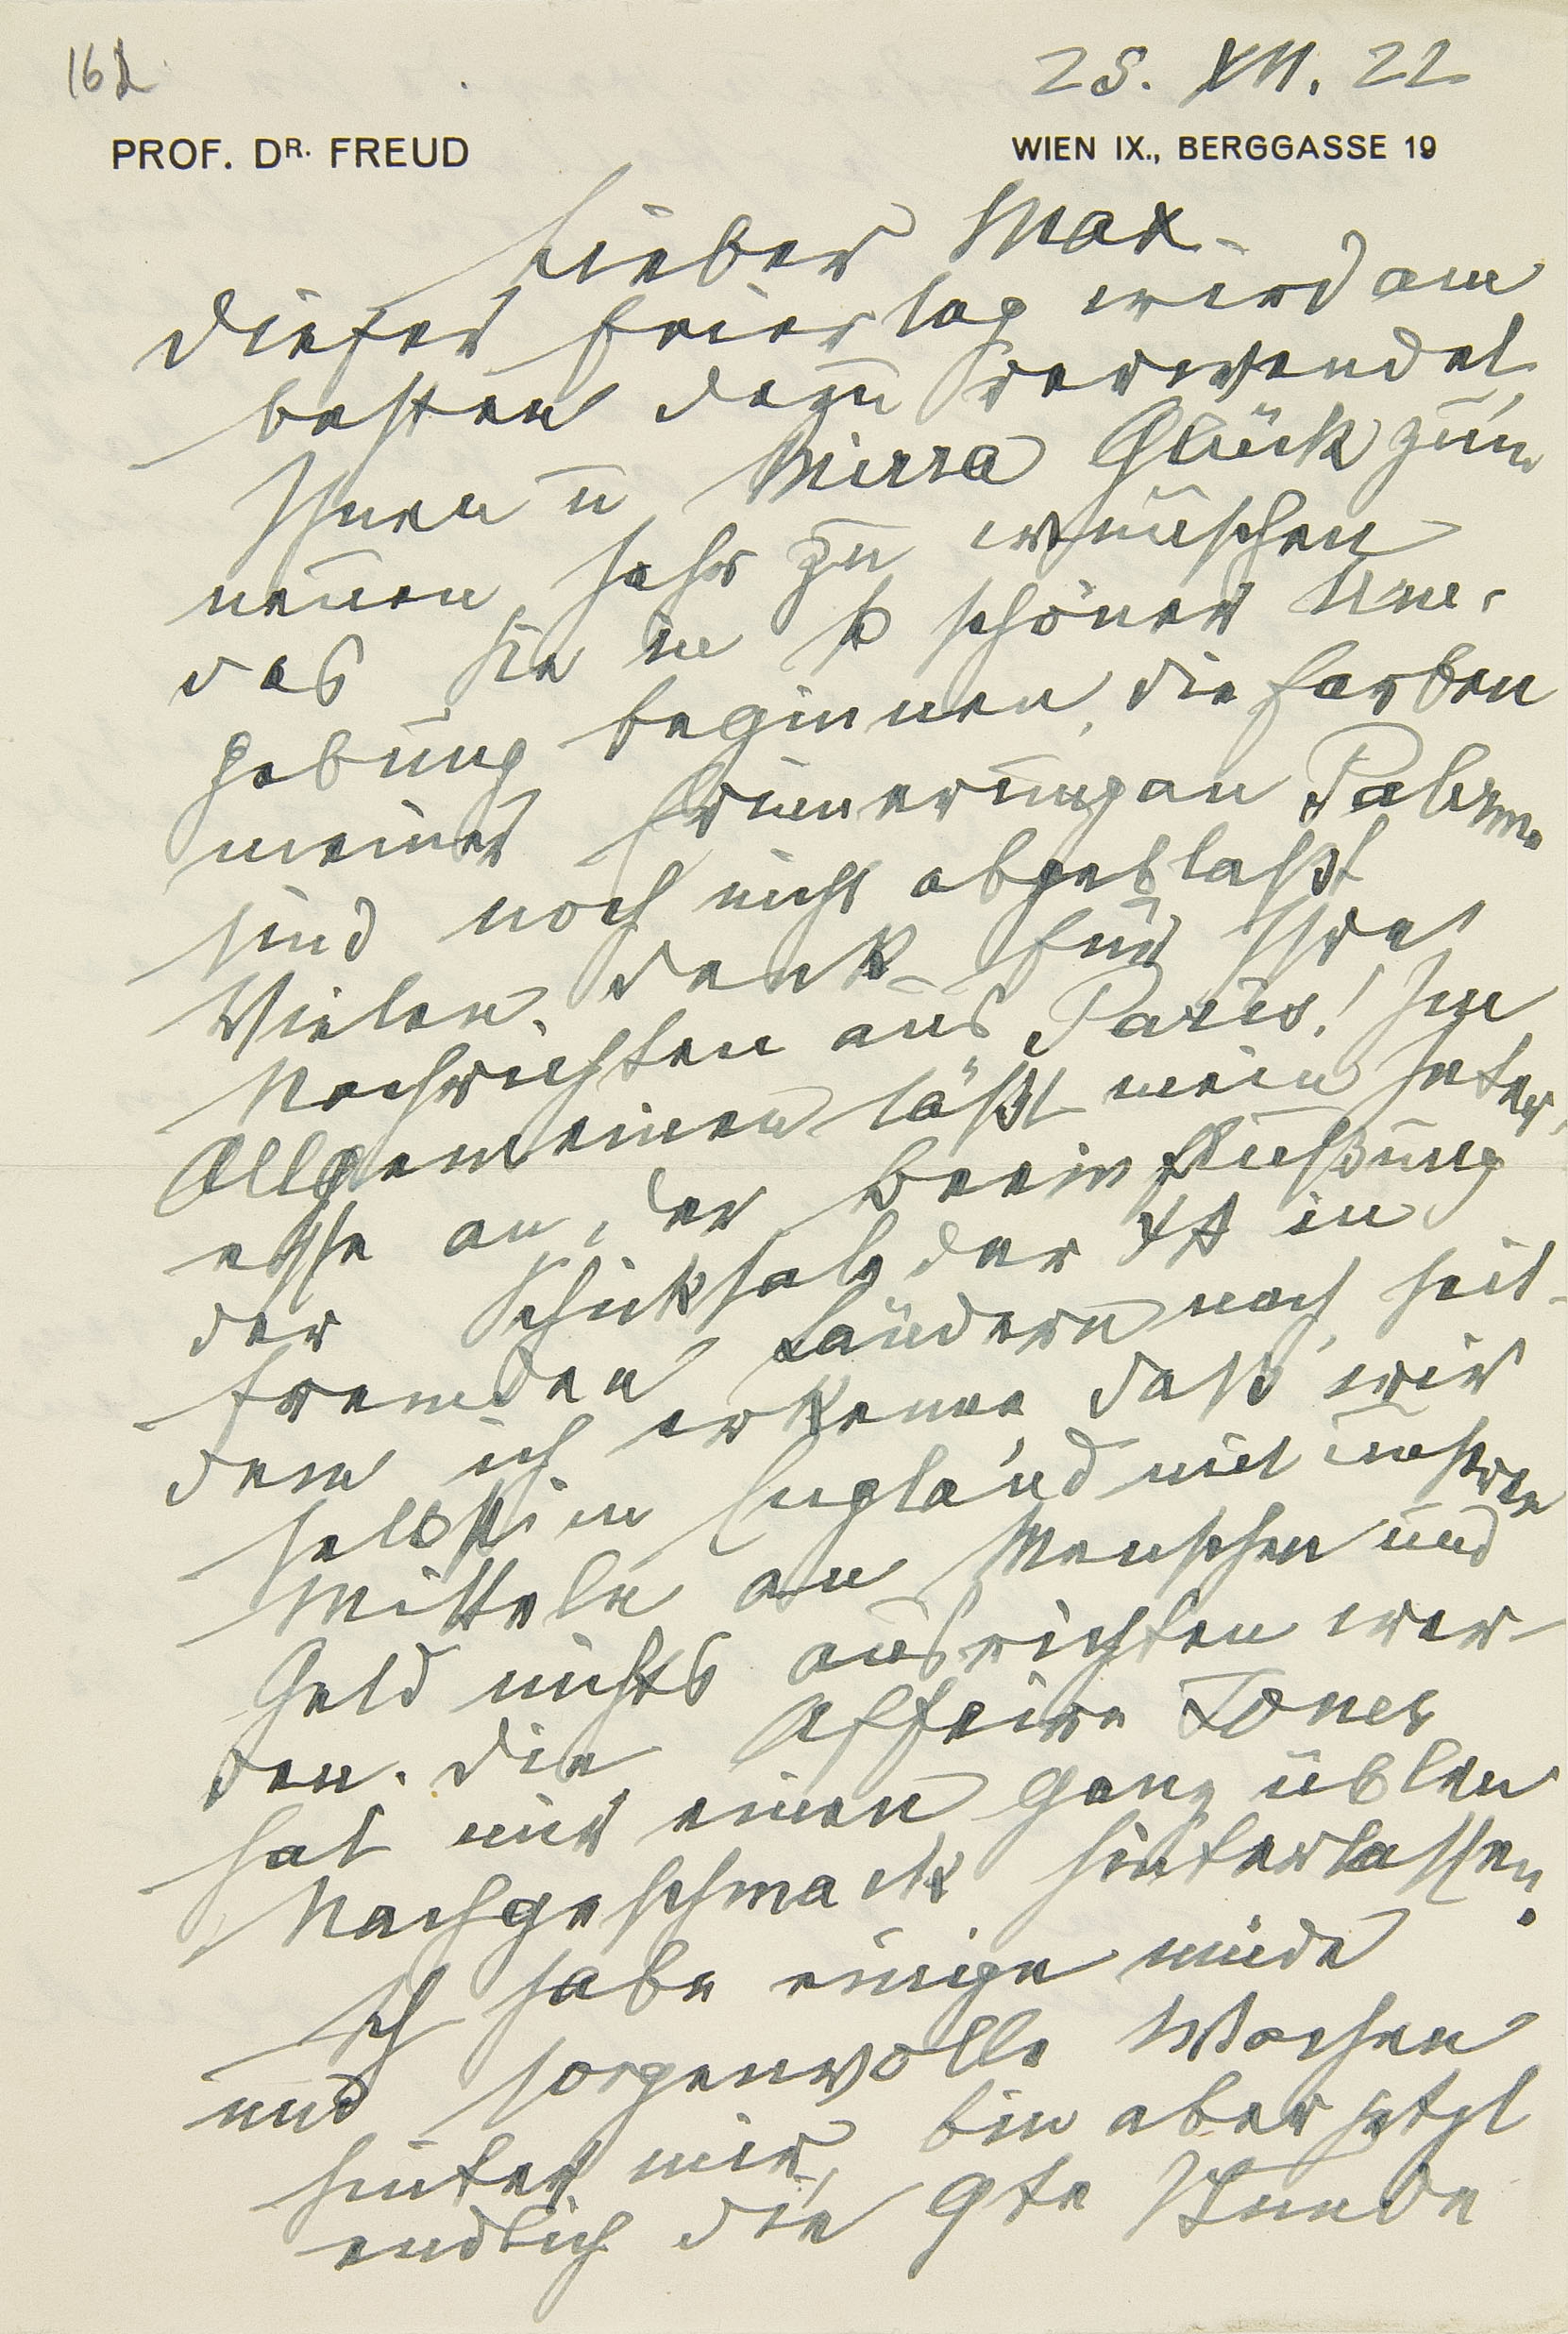 162
25. XII. 22
PROF. DR. FREUD
WIEN IX., BERGGASSE 19
Lieber Max
Dieser Feiertag wird am
besten dazu verwendet
Ihnen u Mirra Glück zum
neuen Jahr zu wünschen
das Sie in so schöner Um-
gebung beginnen, die Farben
meiner Erinnerung an Palermo
sind noch nicht abgeblaßt
Vielen Dank für Ihre
Nachrichten aus Paris! Im
Allgemeinen läßt mein Inter-
esse an der Beeinflußung
der Schicksale der ΨA in
fremden Ländern nach, seit-
dem ich erkenne, daß wir
selbst in England mit unseren
Mitteln an Menschen und
Geld nichts ausrichten wer-
den. Die Affaire Jones
hat mir einen ganz üblen
Nachgeschmack hinterlassen.
Ich habe einige müde
und sorgenvolle Wochen
hinter mir, bin aber jetzt
endlich die 9te Stunde